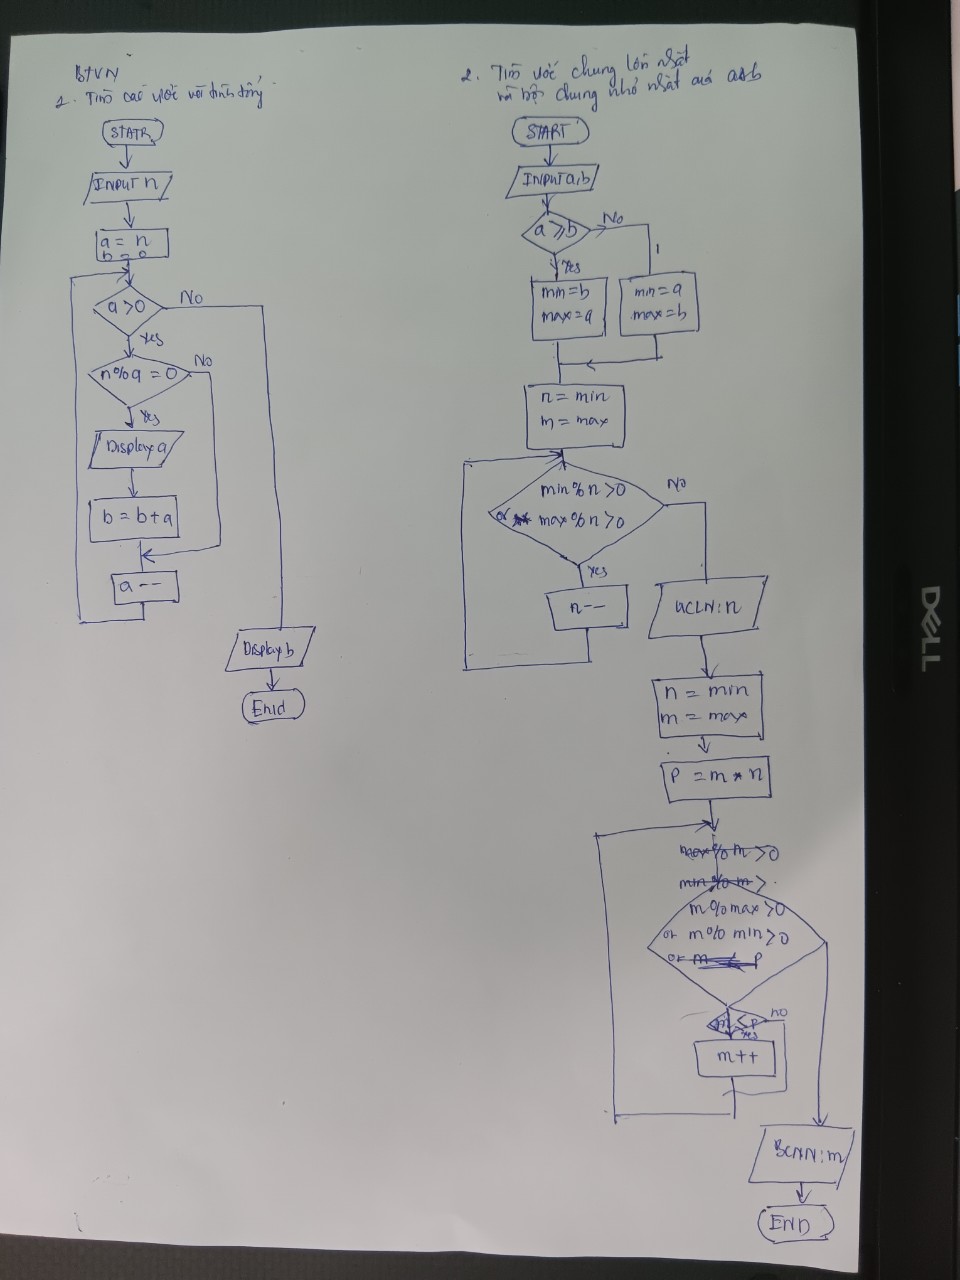 BTVN
1. Tìm các ước và tính tổng
STATR
INPUT n
a = n
b = 0
a > 0
No
Yes
n % a = 0
No
Yes
Display a
b = b + a
a --
Display b
End
2. Tìm ước chung lớn nhất
và bội chung nhỏ nhất của a & b
START
INPUT a, b
a ⩾ b
No
Yes
min = b
max = a
min = a
max = b
n = min
m = max
min % n > 0
or max % n > 0
No
Yes
n --
UCLN : n
n = min
m = max
P = m * n
max % m > 0
min % m >
m % max > 0
or m % min > 0
or m P
m < P
no
Yes
m ++
BCNN : m
END
DELL